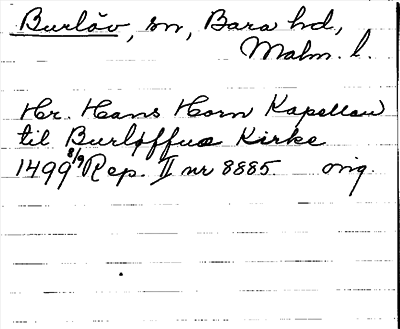 Burlöv, sn, Bara hd,
Malm. l.
Hr. Hans Horn Kapellan
til Burløffue Kirke
1499 8/9 Rep. II nr 8885. orig.